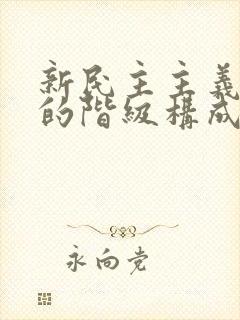 新民主主義
的階級構成
永向党